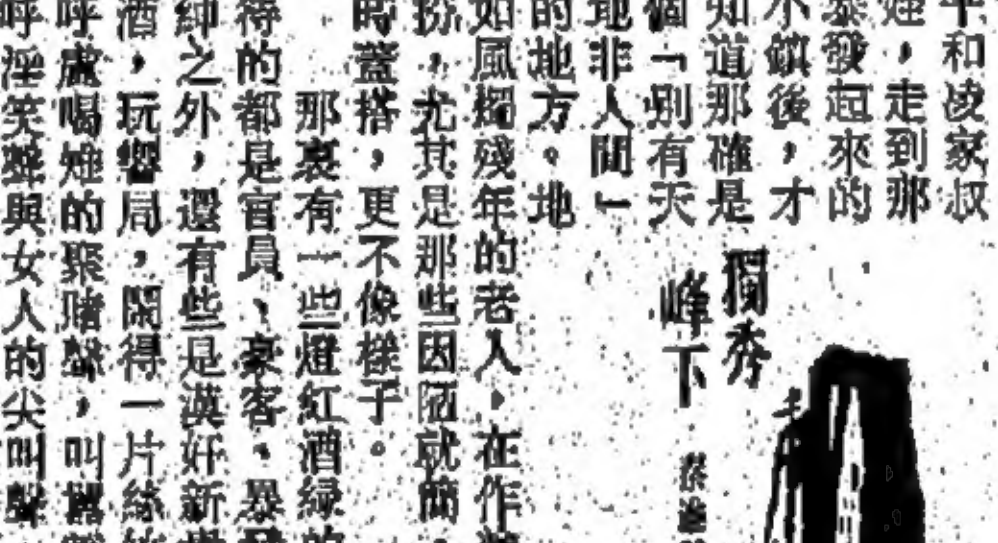 平和凌家叔
煙，走到那
暴發起來的
小鎮後，才
知道那確是
個「別有天
地非人間」
的地方。地
如風燭殘年的老人，在作
扮，尤其是那些因陋就簡，
時蓋搭，更不像樣子。
那裏有一些燈紅酒綠的
待的都是官員、豪客、暴發
紳之外，還有些是漢奸新貴
酒，玩響局，鬧得一片絲
呼盧喝雉的聚賭聲，叫囂
呼淫笑聲與女人的尖叫聲
獨秀
峰下